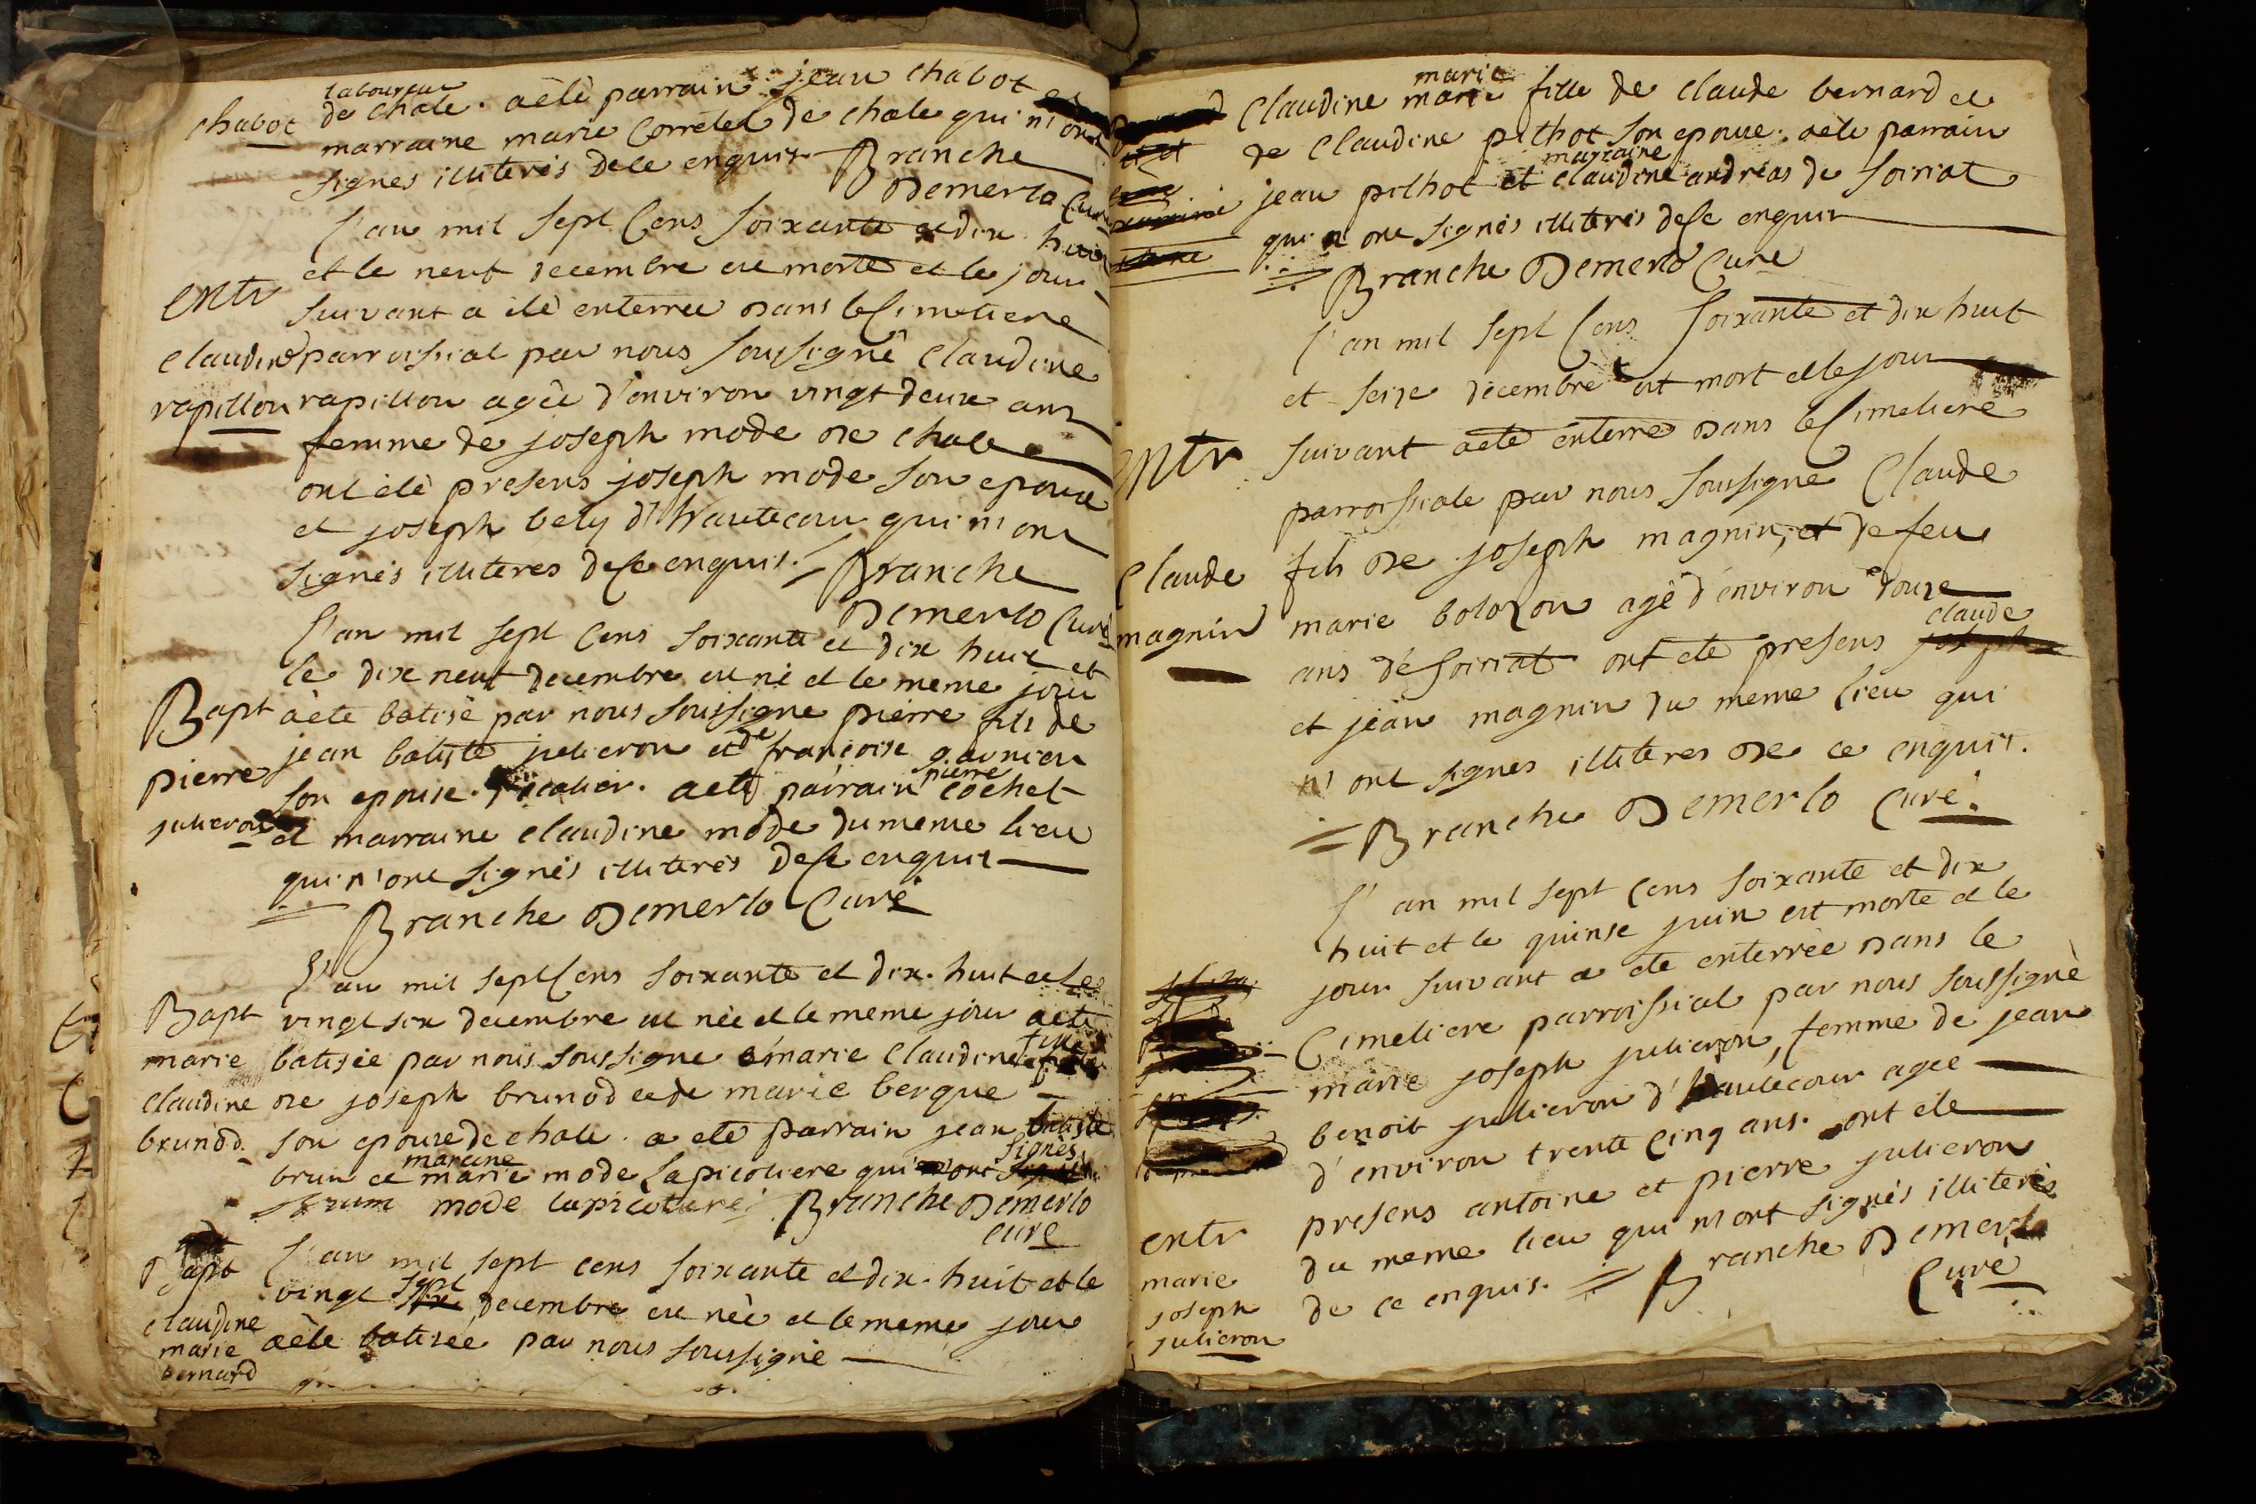 chabot
laboureur
de chale. aètè parrain jean chabot
marraine marie Corretel de chale qui n'ont
signes illiterès dece enquis Branche
Demerlo Curé
L'an mil sept Cens soixante et dix huit
et le neuf decembre est morte et le jour
entr suivant a étè enterree dans le Cimetiere
claudine parroissial par nous soussigné Claudine
rapillon rapillon agèe d'environ vingt deux ans
femme de joseph mode de chale
ont étè presens joseph mode son epoux
et joseph bely d'hautecour qui n'ont
signès illiteres de ce enquis. Branche
Demerlo Curé
L'an mil sept Cens soixante et dix huit et
le dix neuf decembre est né et le meme jour
Bapt aète batisè par nous soussigne pierre fils de
jean batiste julieron et de françoise garnier
pierre son epouse. aetè parrain pierre cochet
julieron et marraine claudine mode du meme lieu
qui n'ont signès illiterès de ce enquis
Branche Demerlo Curé
L'an mil sept Cens soixante et dix. huit et le
Bapt vingt six decembre est nèe et le meme jour aete
marie batisèe par nous soussigne marie Claudine fille
claudine de joseph brunod et de marie berque
brunod. son epouse de chale. a etè parrain jean batiste
brun et maraine marie mode Lapicotiere qui n'ont signès
mode lapicotiere Branche Demerlo
curé
Bapt L'an mil sept cens soixante et dix. huit et le
vingt sept decembre est nèe et le meme jour
claudine aète batisèe par nous soussignè
marie
bernard
Claudine marie fille de Claude bernard et
de Claudine pilhot son epouse. aète parrain
jean pilhot et marraine claudine andréas de soiriat
qui n'ont signès illiterès de ce enquis
Branche Demerlo Cure
L'an mil sept Cens soixante et dix huit
et seize decembre est mort et le jour
entr suivant aetè enterrè dans le Cimetiere
parroissiale par nous soussigne Claude
Claude fils de joseph magnin, et de feu
magnin marie bolozon agè d'environ douze
ans de soiriat ont ete presens claude
et jean magnin du meme lieu qui
n'ont signes illiteres de ce enquis.
Branche Demerlo Curé.
L'an mil sept Cens soixante et dix
huit et le quinse juin est morte et le
jour suivant a ete enterrèe dans le
Cimetiere parroissial par nous soussignè
marie joseph julieron, femme de jean
benoit julieron d'hautecour agee
d'environ trente Cinq ans. ont ete
presens antoine et pierre julieron
entr du meme lieu qui n'ont signès illiterès
marie de ce enquis. Branche Demerlo
joseph Curé
julieron